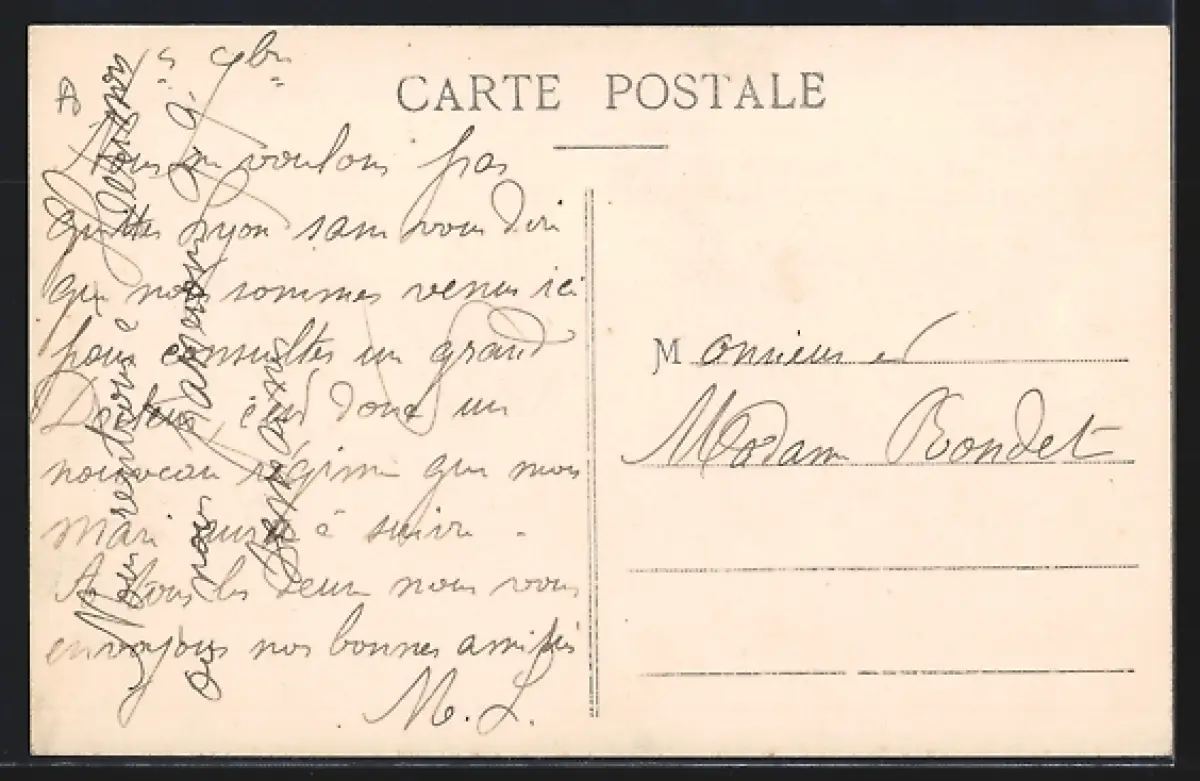 CARTE POSTALE
Nous ne voulons pas
quitter Lyon sans vous dire
que nous sommes venus ici
pour consulter un grand
Docteur, c'est donc un
nouveau régime que mon
mari aura à suivre.
A tous les deux nous vous
envoyons nos bonnes amitiés
M. L.
Nous rentrons à
où nous passerons
Monsieur et
Madame Bondet